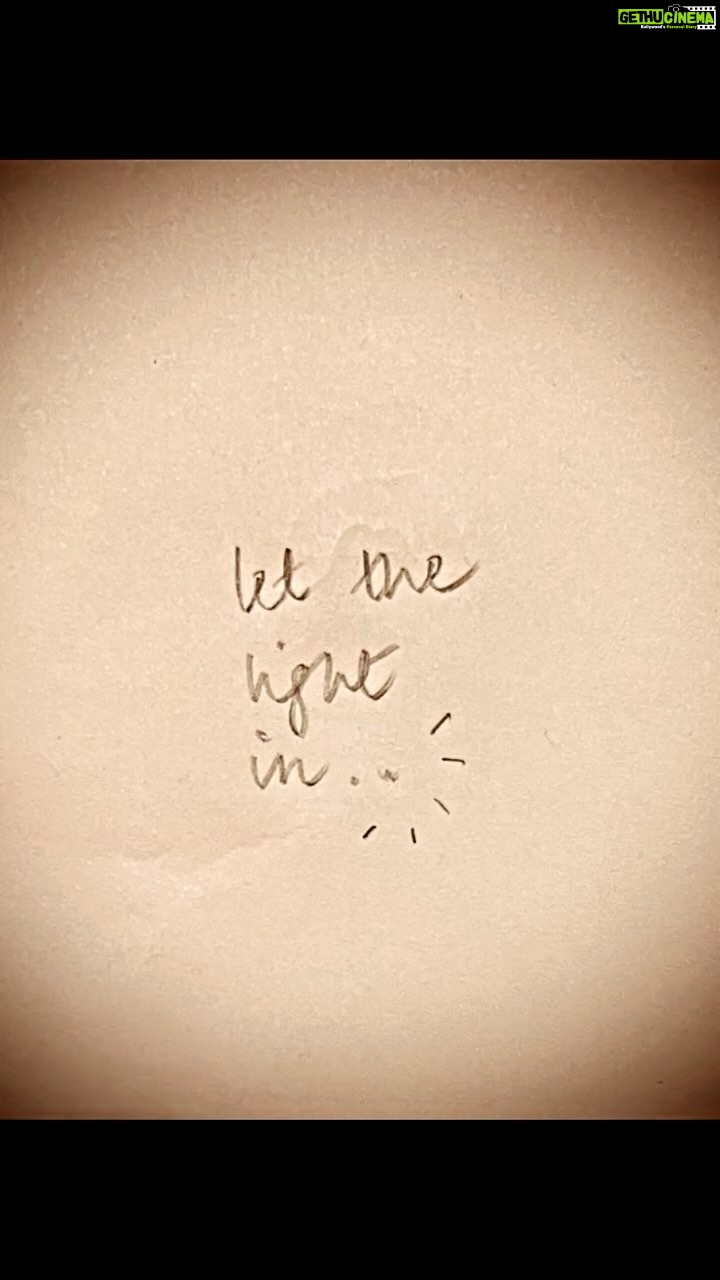 GETHUCINEMA
Kollywood's Personal Diary
let the
light
in...